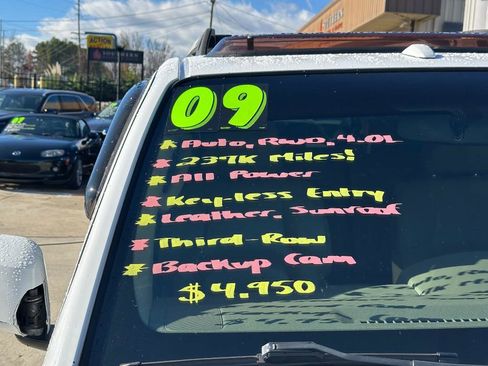 09
* Auto, RWD, 4.0L
* 239K Miles!
* All Power
* Key-less Entry
* Leather, Sunroof
* Third-Row
* Backup Cam
$4,950